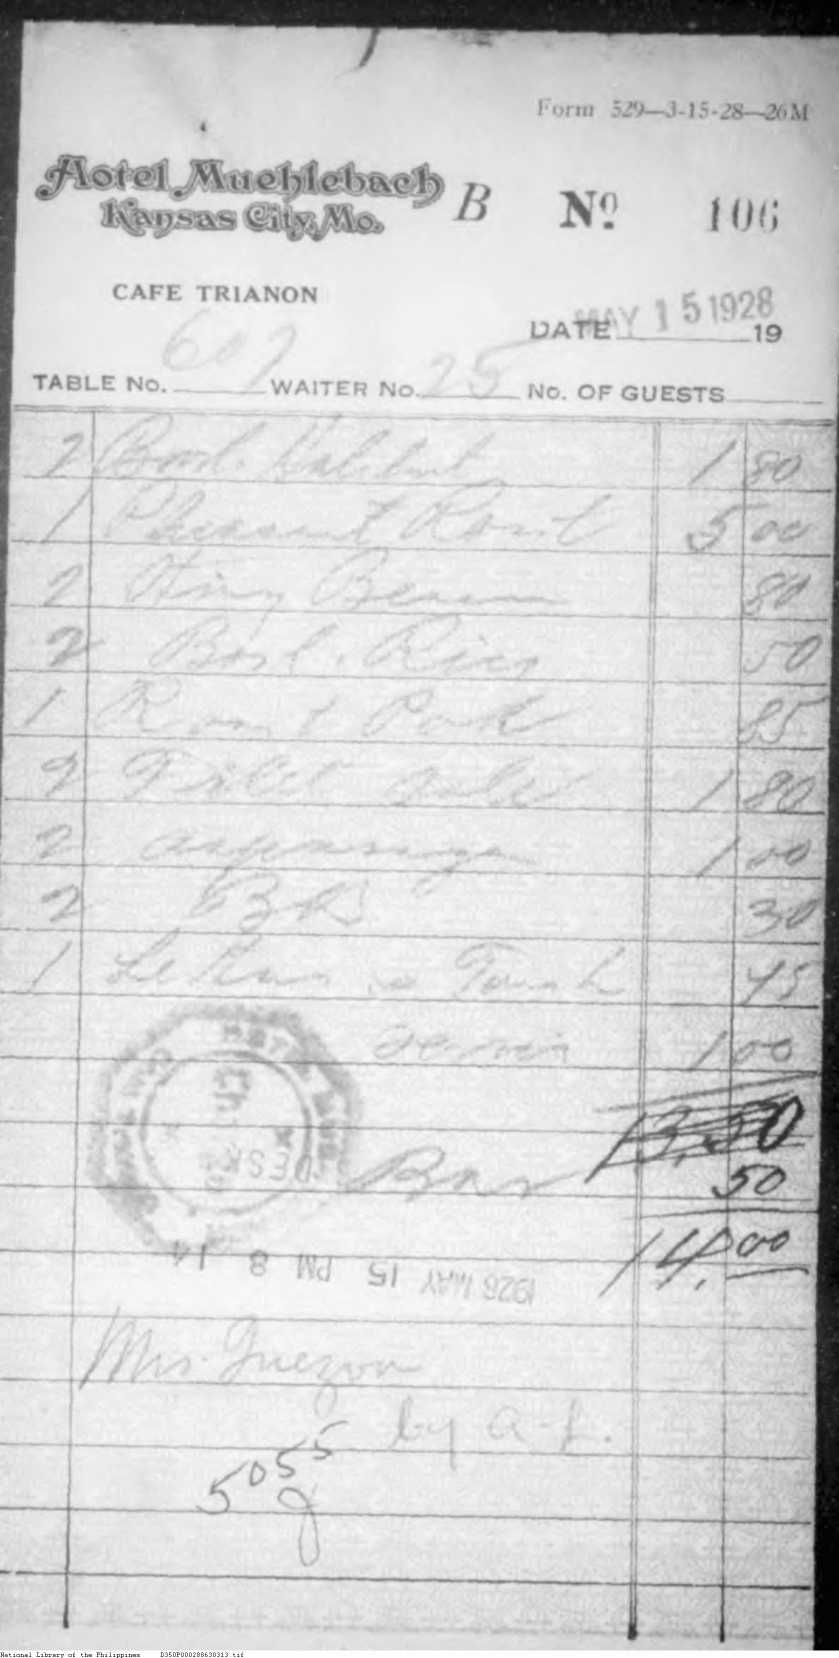 Form 529—3-15-28—26M
Hotel Muehlebach
Kansas City, Mo.
B Nº 106
CAFE TRIANON
DATE MAY 15 1928 19
TABLE No. 607 WAITER No. 25 No. OF GUESTS
2 Broil. Halibut 1 80
1 Pheasant Roast 5 00
2 String Beans 80
2 Boil. Rice 50
1 Roast Pork 85
2 Filet Sole 1 80
2 asparagus 1 00
2 30
1 Lettuce & Tomato 45
Service 1 00
13.50
50
14.00
DESK
1928 MAY 15 PM 8 14
Mrs. Quezon
by a. f.
5055
National Library of the Philippines D350P000288630313.tif